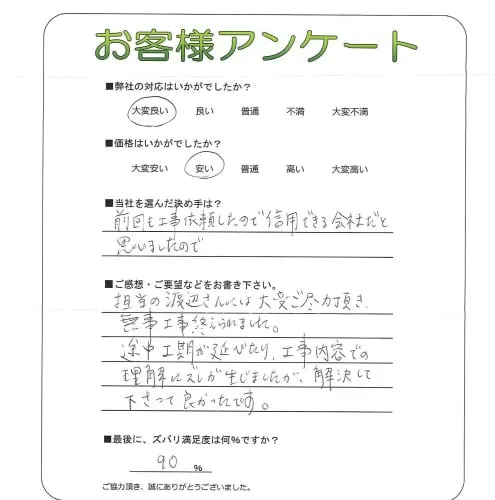 お客様アンケート
■弊社の対応はいかがでしたか？
大変良い 良い 普通 不満 大変不満
■価格はいかがでしたか？
大変安い 安い 普通 高い 大変高い
■当社を選んだ決め手は？
前回も工事依頼したので信用できる会社だと
思いましたので
■ご感想・ご要望などをお書き下さい。
担当の渡辺さんには大変ご尽力頂き、
無事工事終えられました。
途中工期が延びたり、工事内容での
理解にズレが生じましたが、解決して
下さって良かったです。
■最後に、ズバリ満足度は何％ですか？
90 ％
ご協力頂き、誠にありがとうございました。